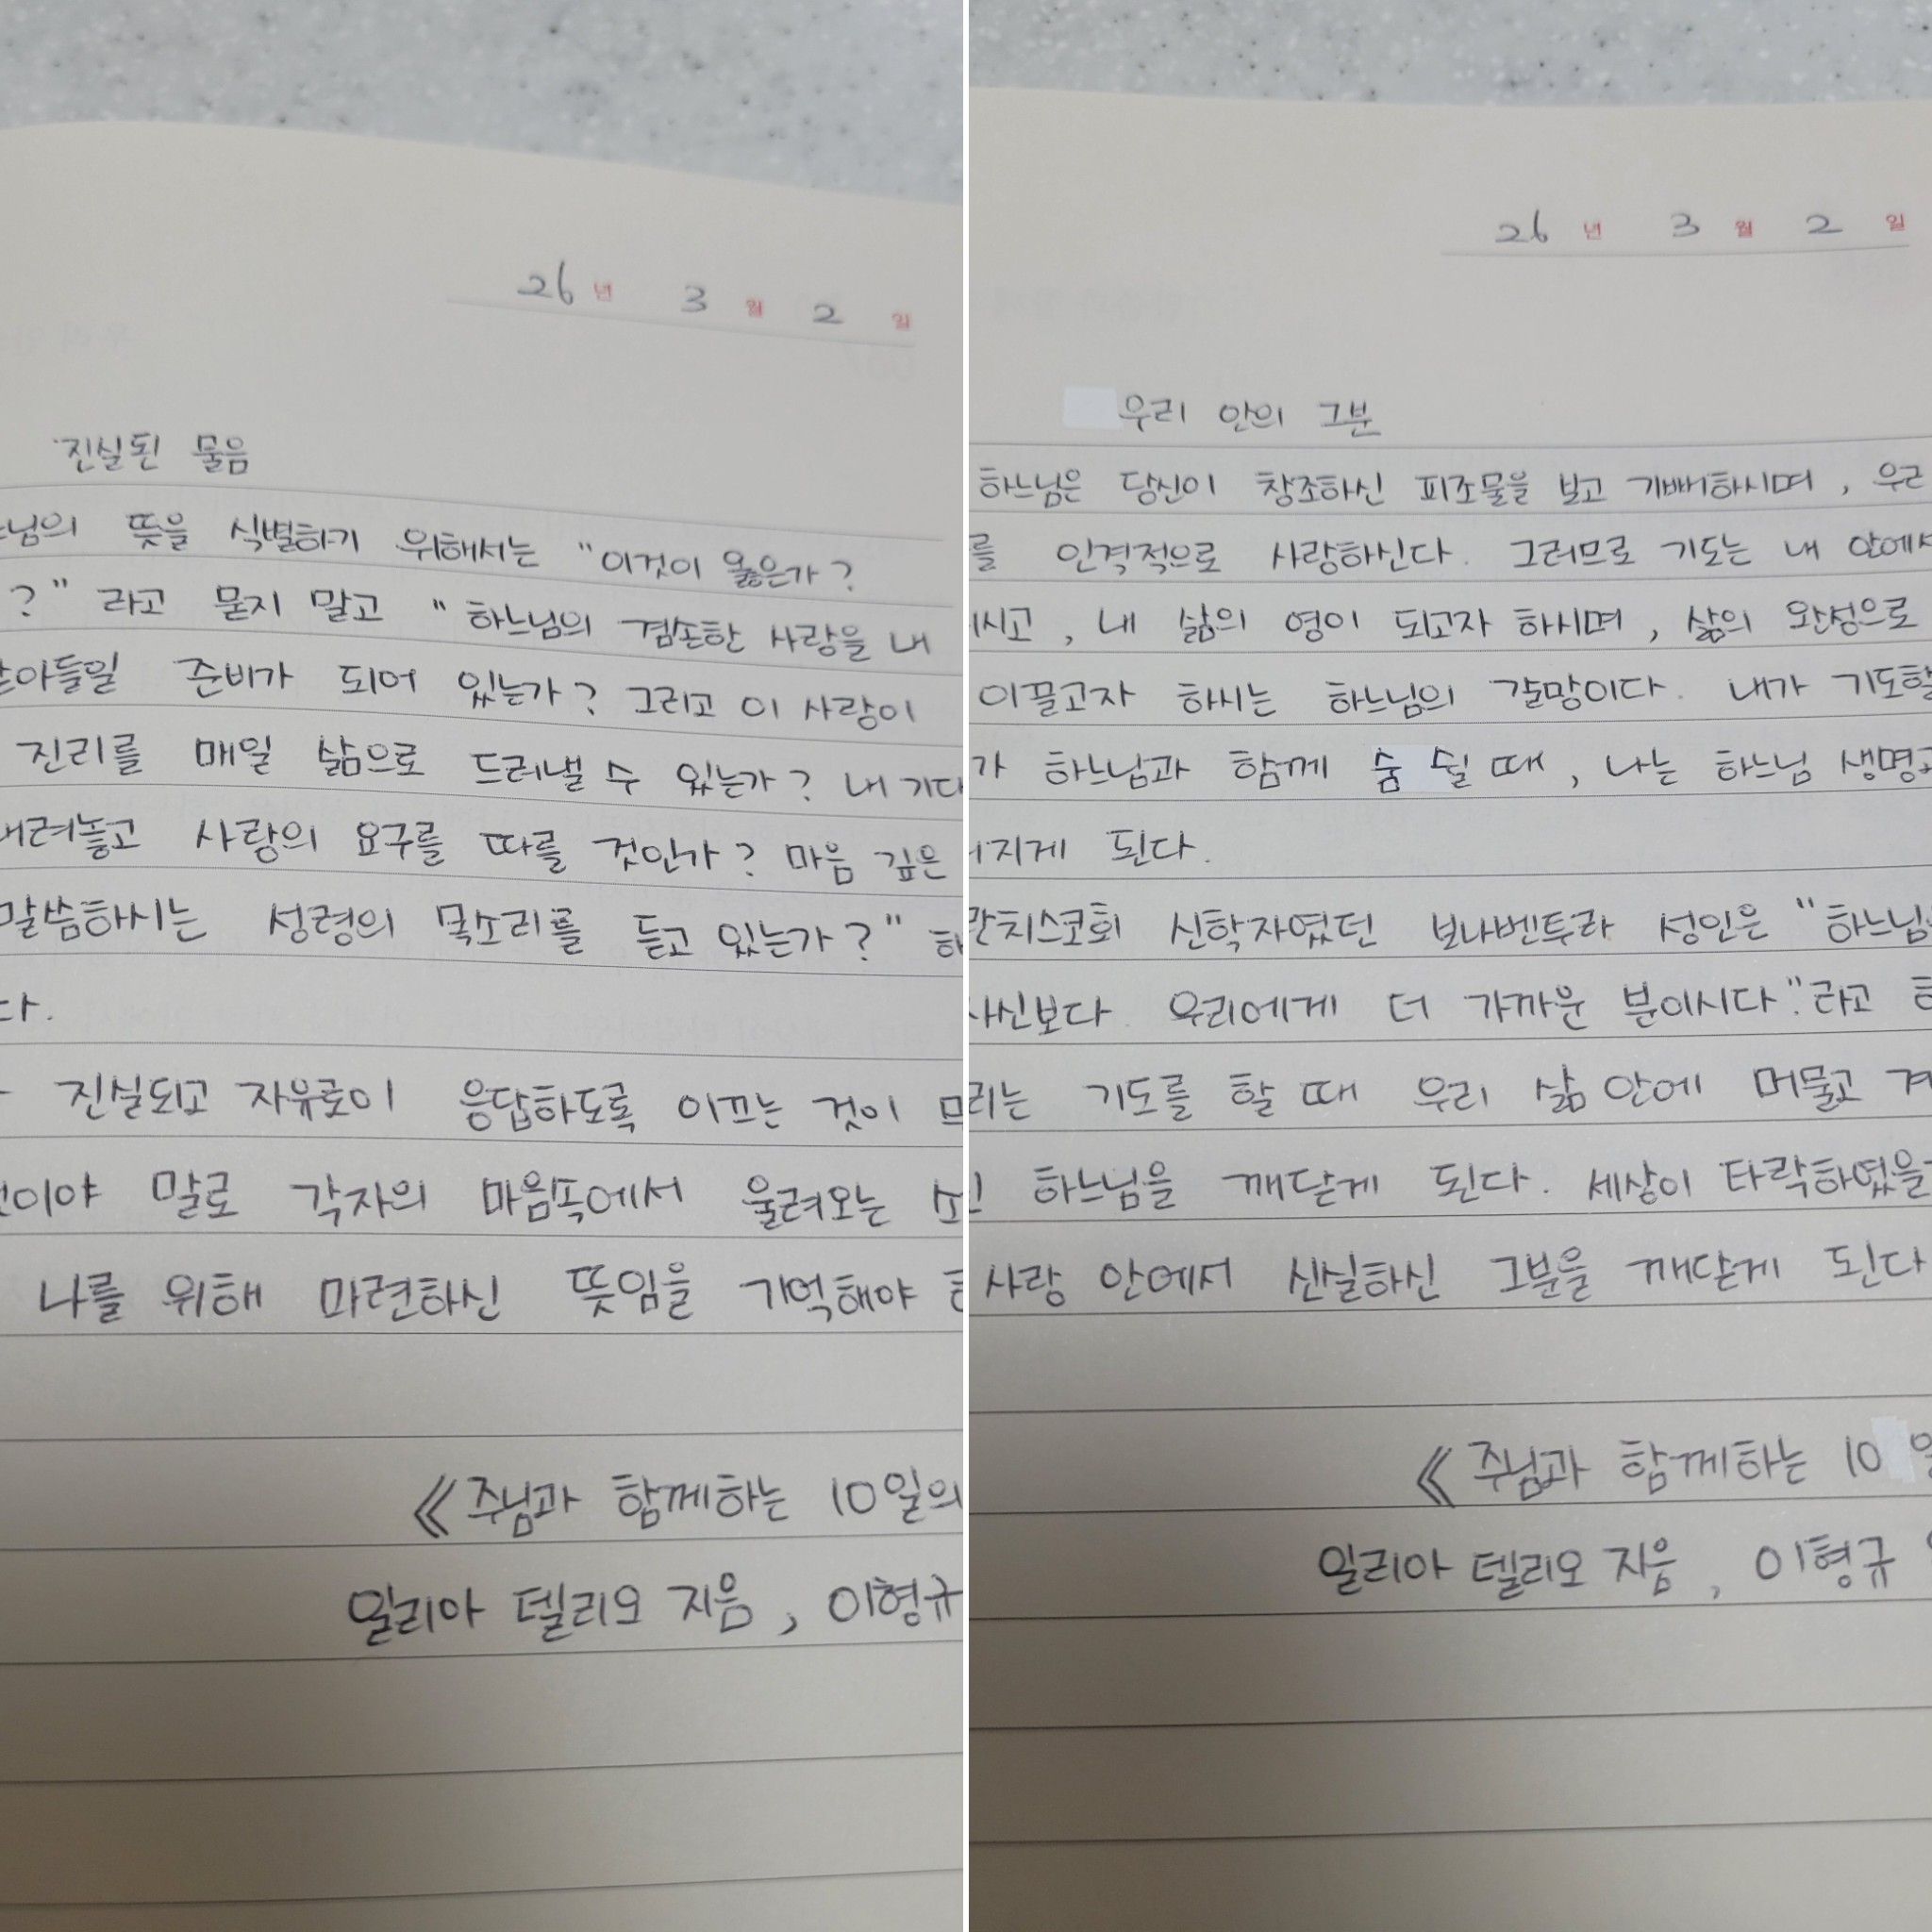 26년 3월 2일
진실된 물음
느님의 뜻을 식별하기 위해서는 "이것이 옳은가?
?" 라고 묻지 말고 "하느님의 겸손한 사랑을 내
받아들일 준비가 되어 있는가? 그리고 이 사랑이
진리를 매일 삶으로 드러낼 수 있는가? 내 기대
내려놓고 사랑의 요구를 따를 것인가? 마음 깊은
말씀하시는 성령의 목소리를 듣고 있는가?" 하
다.
진실되고 자유로이 응답하도록 이끄는 것이
것이야 말로 각자의 마음속에서 울려오는
나를 위해 마련하신 뜻임을 기억해야
《주님과 함께하는 10일의
일리아 델리오 지음, 이형규
26년 3월 2일
우리 안의 그분
하느님은 당신이 창조하신 피조물을 보고 기뻐하시며, 우리
를 인격적으로 사랑하신다. 그러므로 기도는 내 안에서
시고, 내 삶의 영이 되고자 하시며, 삶의 완성으로
이끌고자 하시는 하느님의 갈망이다. 내가 기도할
가 하느님과 함께 숨 쉴 때, 나는 하느님 생명과
지게 된다.
란치스코회 신학자였던 보나벤투라 성인은 "하느님
자신보다 우리에게 더 가까운 분이시다."라고
리는 기도를 할 때 우리 삶 안에 머물고 계
신 하느님을 깨닫게 된다. 세상이 타락하였을
사랑 안에서 신실하신 그분을 깨닫게 된다
《주님과 함께하는 10일
일리아 델리오 지음, 이형규